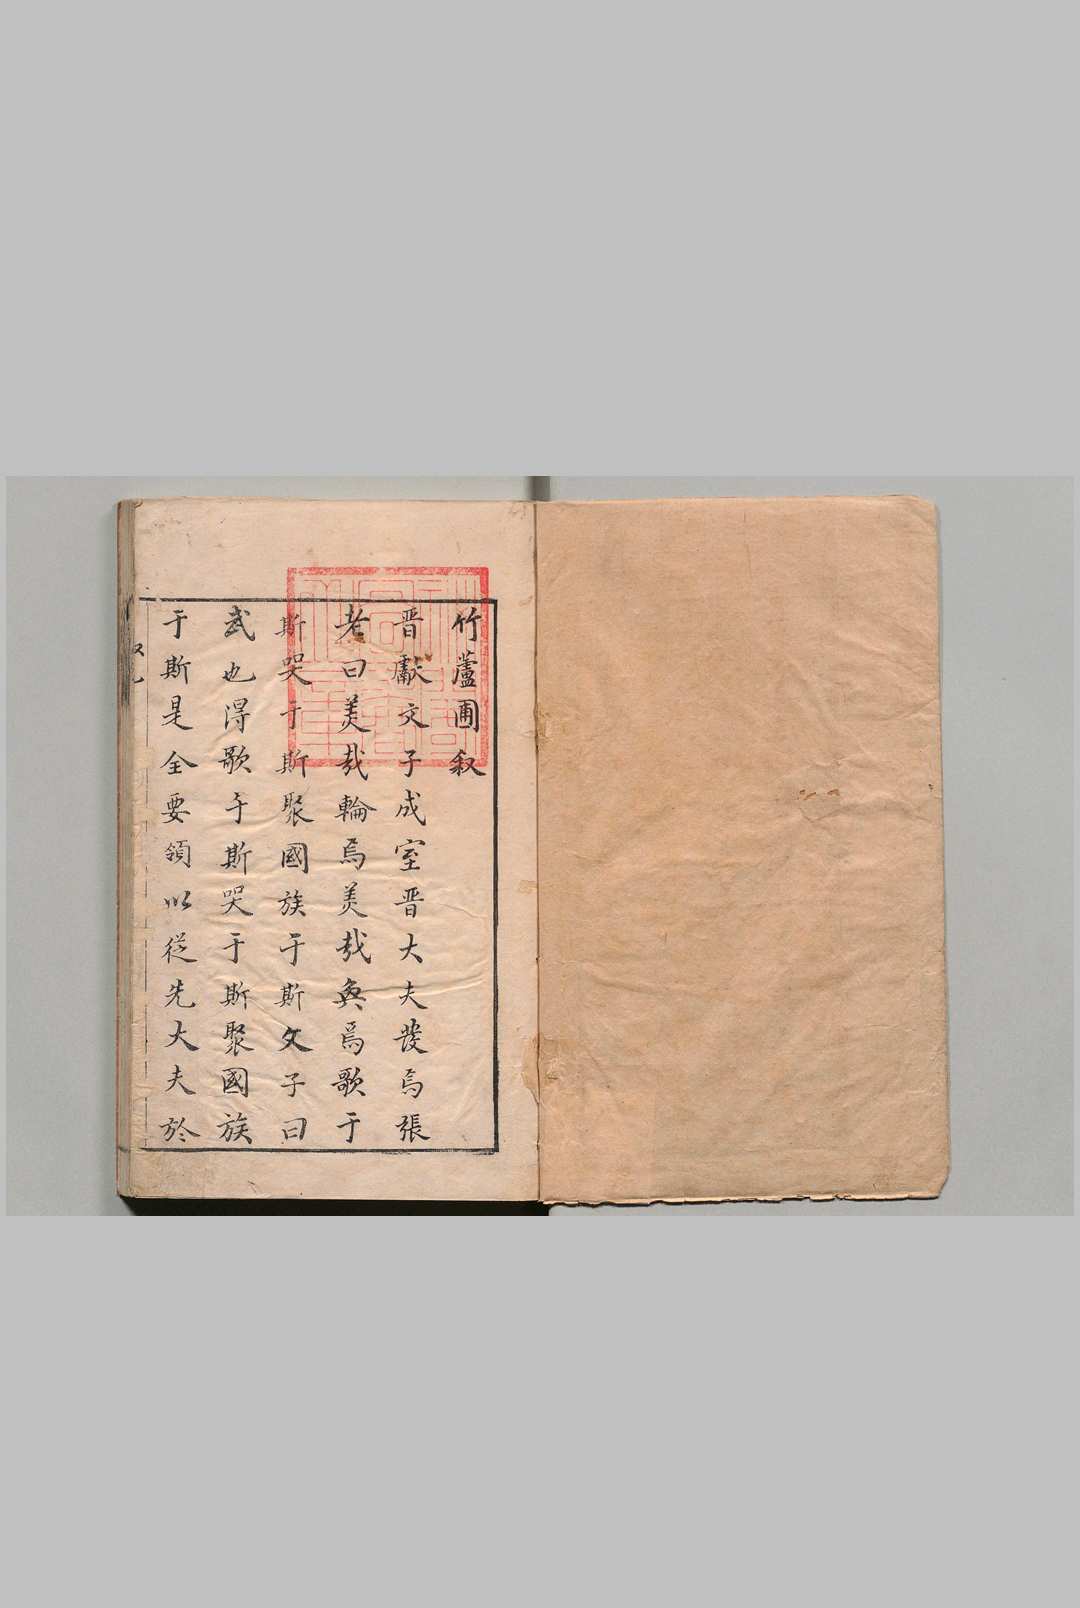 竹蘆圃叙
晋獻文子成室晋大夫發焉張
老曰美哉輪焉美哉奐焉歌于
斯哭于斯聚國族于斯文子曰
武也得歌于斯哭于斯聚國族
于斯是全要領以從先大夫於